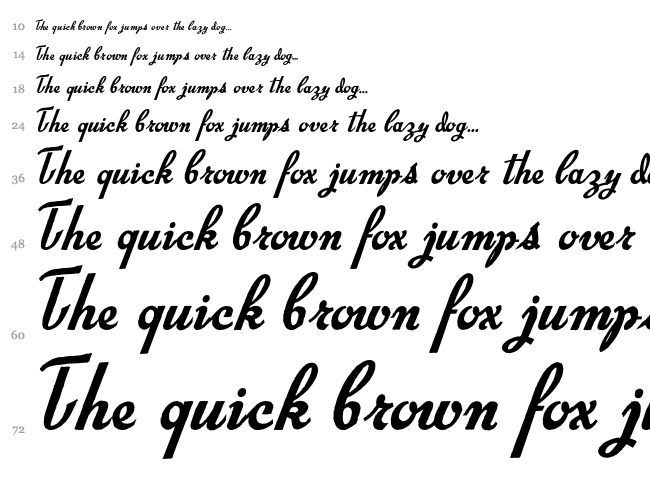 10 The quick brown fox jumps over the lazy dog...
14 The quick brown fox jumps over the lazy dog...
18 The quick brown fox jumps over the lazy dog...
24 The quick brown fox jumps over the lazy dog...
36 The quick brown fox jumps over the lazy d
48 The quick brown fox jumps over
60 The quick brown fox jumps
72 The quick brown fox j